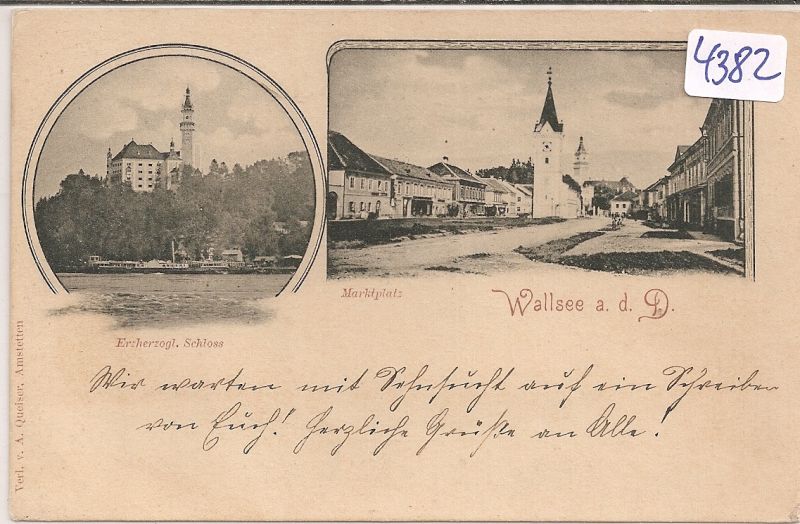 4382
Marktplatz
Wallsee a. d. D.
Erzherzogl. Schloss
Wir warten mit Sehnsucht auf ein Schreiben
von Euch! Herzliche Grüße an Alle!
Verl. v. A. Queiser, Amstetten